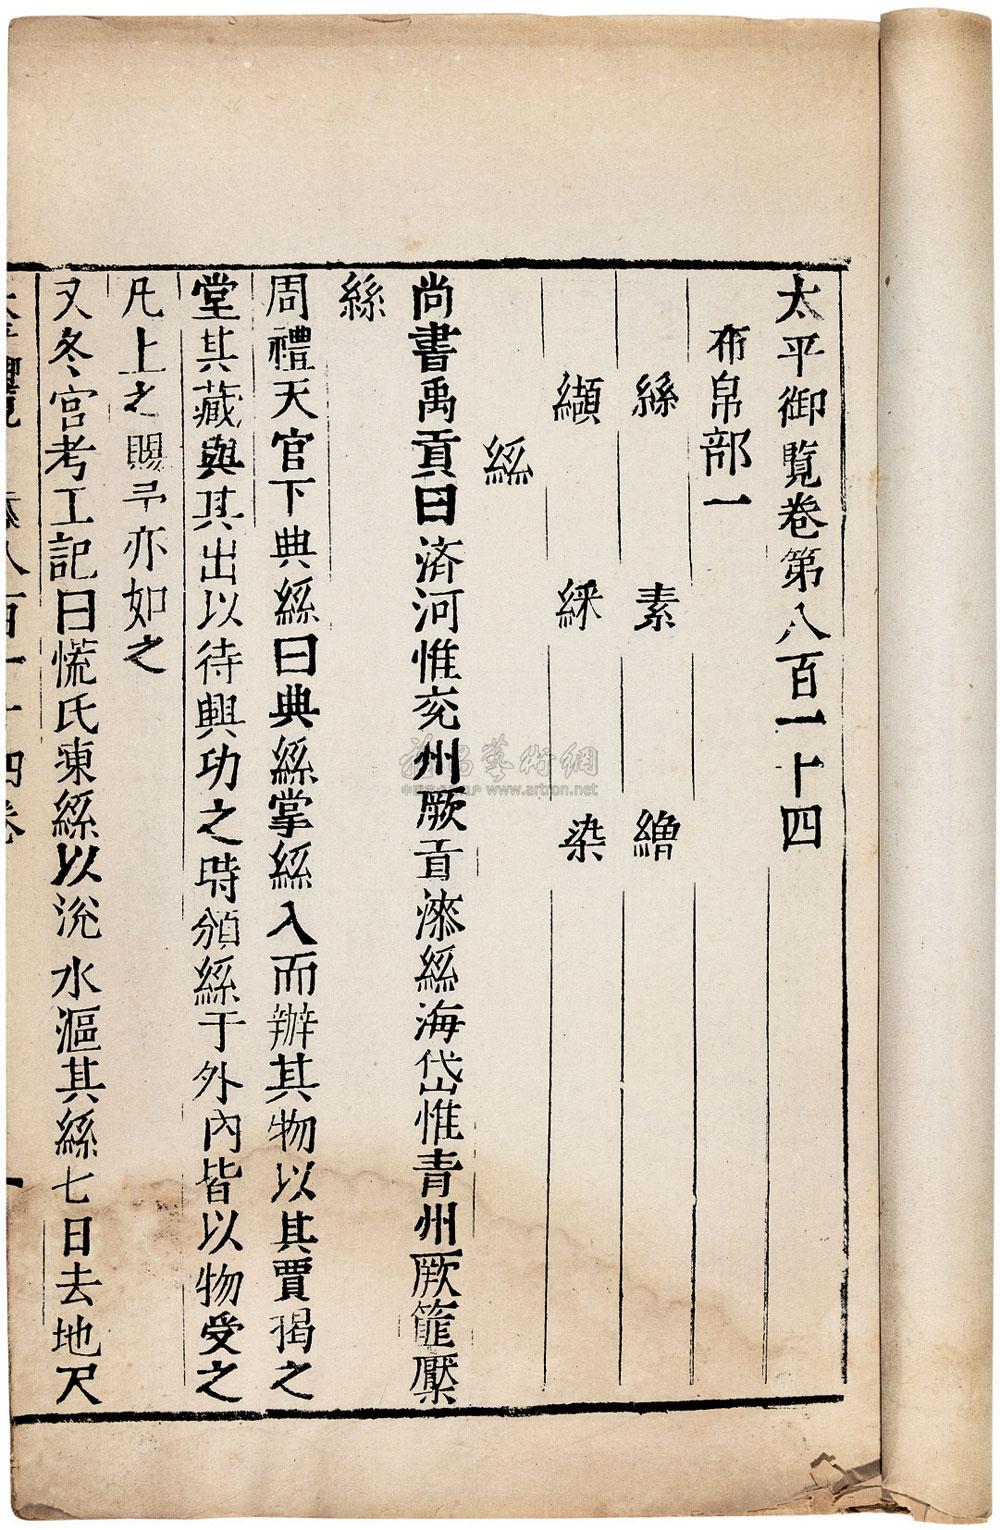 太平御覽卷第八百一十四
布帛部一
絲 素 繒
纈 綵 染
絲
尚書禹貢曰济河惟兖州厥貢漆絲海岱惟青州厥篚檿
絲
周禮天官下典絲曰典絲掌絲入而辦其物以其賈揭之
堂其藏與其出以待興功之時頒絲于外內皆以物受之
凡上之賜予亦如之
又冬官考工記曰㡆氏湅絲以涗水漚其絲七日去地尺
八百一十四卷 一
藝術網
www.artron.net